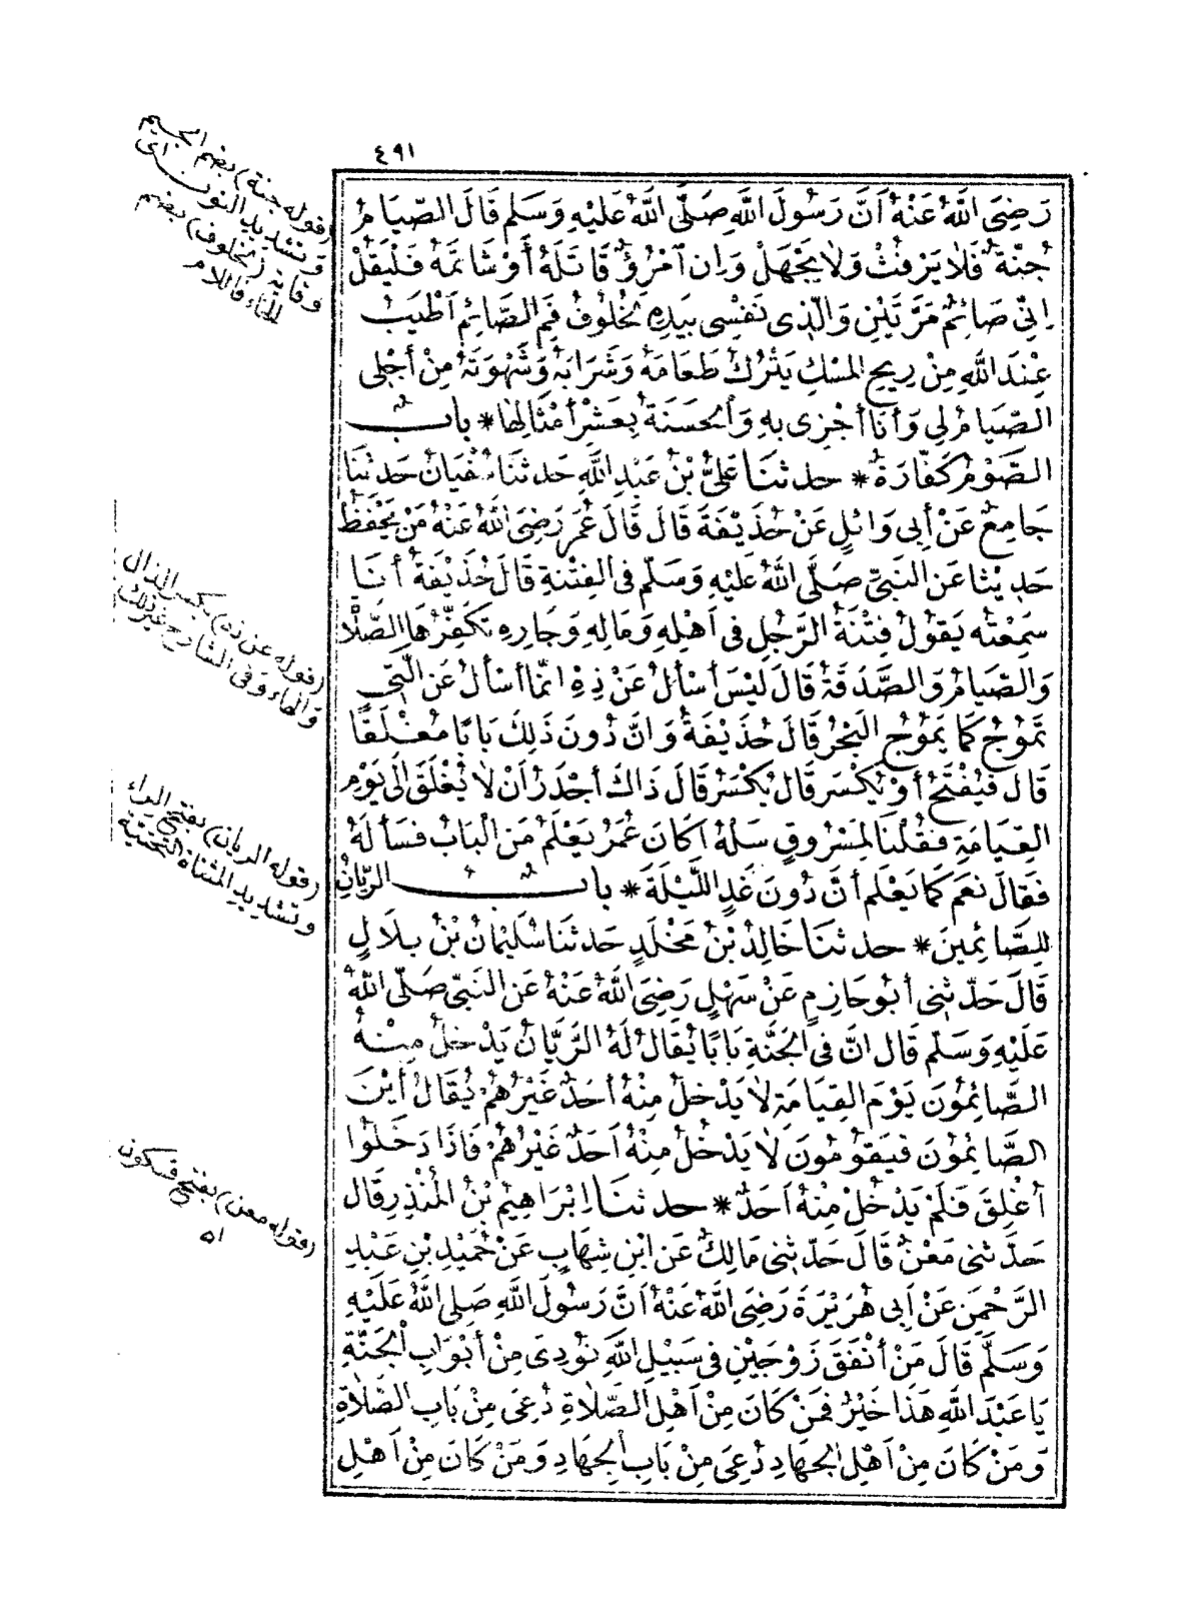 ٤٩١
رَضِىَ اللَّهُ عَنْهُ أَنَّ رَسُولَ اللَّهِ صَلَّى اللَّهُ عَلَيْهِ وَسَلَّمَ قَالَ الصِّيَامُ
جُنَّةٌ فَلَا يَرْفُثْ وَلَا يَجْهَلْ وَاِنِ آمْرُؤٌ قَاتَلَهُ أَوْ شَاتَمَهُ فَلْيَقُلْ
اِنِّى صَائِمٌ مَرَّتَيْنِ وَالَّذِى نَفْسِى بِيَدِهِ لَخُلُوفُ فَمِ الصَّائِمِ أَطْيَبُ
عِنْدَ اللَّهِ مِنْ رِيحِ المِسْكِ يَتْرُكُ طَعَامَهُ وَشَرَابَهُ وَشَهْوَتَهُ مِنْ أَجْلِى
الصِّيَامُ لِى وَأَنَا أَجْزِى بِهِ وَالْحَسَنَةُ بِعَشْرِ أَمْثَالِهَا * باب
الصَّوْمُ كَفَّارَةٌ * حدثنا عَلِىُّ بْنُ عَبْدِ اللَّهِ حَدثنَا سُفْيَانُ حَدثنَا
جَامِعٌ عَنْ أَبِى وَائِلٍ عَنْ حُذَيْفَةَ قَالَ قَالَ عُمَرُ رَضِىَ اللَّهُ عَنْهُ مَنْ يَحْفَظُ
حَدِيْثًا عَنِ النَّبِىِّ صَلَّى اللَّهُ عَلَيْهِ وَسَلَّمَ فى الفِتْنَةِ قَالَ حُذَيْفَةُ أَنَا
سَمِعْتُه يَقُولُ فِتْنَةُ الرَّجُلِ فى اَهْلِهِ وَمَالِهِ وَجَارِهِ تُكَفِّرُهَا الصَّلَاةُ
وَالصِّيَامُ وَالصَّدَقَةُ قَالَ لَيْسَ أَسْأَلُ عَنْ ذِهْ انَّمَا أَسْأَلُ عَنِ الَّتِى
تَمُوْجُ كَمَا يَمُوْجُ البَحْرُ قَالَ حُذَيْفَةُ وَانَّ دُونَ ذَلِكَ بَابًا مُغْلَقًا
قَالَ فَيُفْتَحُ أَوْ يُكْسَرُ قَالَ يُكْسَرُ قَالَ ذَاكَ أَجْدَرُ أَنْ لَا يُغْلَقَ اِلَى يَوْمِ
القِيَامَةِ فَقُلْنَا لِمَسْرُوقٍ سَلْهُ اَكَانَ عُمَرُ يَعْلَمُ مَنِ الْبَابُ فَسَأَلَهُ
فَقَالَ نَعَمْ كَمَا يَعْلَمُ أَنَّ دُونَ غَدٍ اللَّيْلَةَ * باب الرَّيَّانُ
لِلصَّائِمِينَ * حدثنا خَالِدُ بْنُ مَخْلَدٍ حَدثنَا سُلَيْمَانُ بْنُ بِلَالٍ
قَالَ حَدَّثنِى أَبُو حَازِمٍ عَنْ سَهْلٍ رَضِىَ اللَّهُ عَنْهُ عَنِ النَّبِىِّ صَلَّى اللَّهُ
عَلَيْهِ وَسَلَّمَ قَالَ انَّ فى الجَنَّةِ بَابًا يُقَالُ لَهُ الرَّيَّانُ يَدْخُلُ مِنْهُ
الصَّائِمُونَ يَوْمَ القِيَامَةِ لَا يَدْخُلُ مِنْهُ أَحَدٌ غَيْرُهُمْ يُقَالُ أَيْنَ
الصَّائِمُوْنَ فَيَقُوْمُونَ لَا يَدْخُلُ مِنْهُ اَحَدٌ غَيْرُهُمْ فَاذَا دَخَلُوْا
أُغْلِقَ فَلَمْ يَدْخُلْ مِنْهُ اَحَدٌ * حدثنا اِبْرَاهِيْمُ بْنُ المُنْذِرِ قَالَ
حَدَّثنِى مَعْنٌ قَالَ حَدَّثنِى مَالِكٌ عَنِ ابْنِ شِهَابٍ عَنْ حُمَيْدِ بْنِ عَبْدِ
الرَّحْمَنِ عَنْ اَبِى هُرَيْرَةَ رَضِىَ اللَّهُ عَنْهُ اَنَّ رَسُولَ اللَّهِ صَلى اللَّهُ عَلَيْهِ
وَسَلَّمَ قَالَ مَنْ أَنْفَقَ زَوْجَيْنِ فى سَبِيْلِ اللَّهِ نُوْدِىَ مِنْ أَبْوَابِ الْجَنَّةِ
يَا عَبْدَ اللَّهِ هَذَا خَيْرٌ فَمَنْ كَانَ مِنْ اَهْلِ الصَّلَاةِ دُعِىَ مِنْ بَابِ الصَّلَاةِ
وَمَنْ كَانَ مِنْ اَهْلِ الجِهَادِ دُعِىَ مِنْ بَابِ الْجِهَادِ وَمَنْ كَانَ مِنْ اَهْلِ
(قوله جنة) بضم الجيم
وتشديد النون اى
وقاية (لخلوف) بضم
الخاء فاللام
(قوله عن ذه) بكسر الذال
والهاء وفى الشارح غير ذلك
(قوله الريان) بفتح الراء
وتشديد المثناة التحتية
(قوله معن) بفتح فسكون
اه